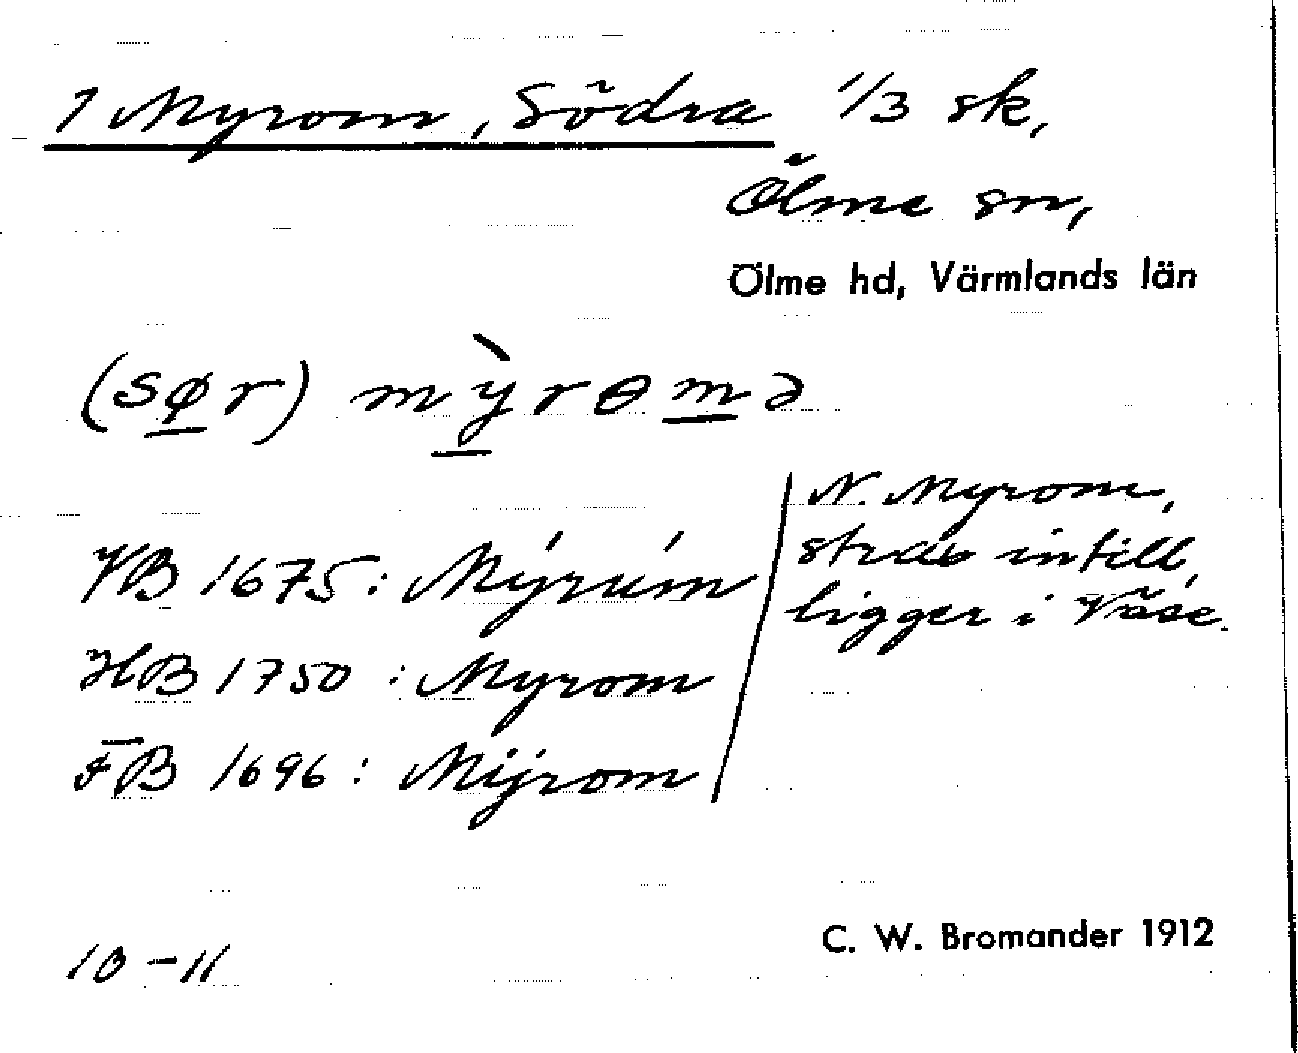 1 Myrom, Södra 1/3 sk,
Ölme sn,
Ölme hd, Värmlands län
(sør) mỳrɵmə
N. Myrom,
strax intill,
ligger i Väse.
VB 1675: Mýrúm
HB 1750: Myrom
FB 1696: Mÿrom
10-11
C. W. Bromander 1912